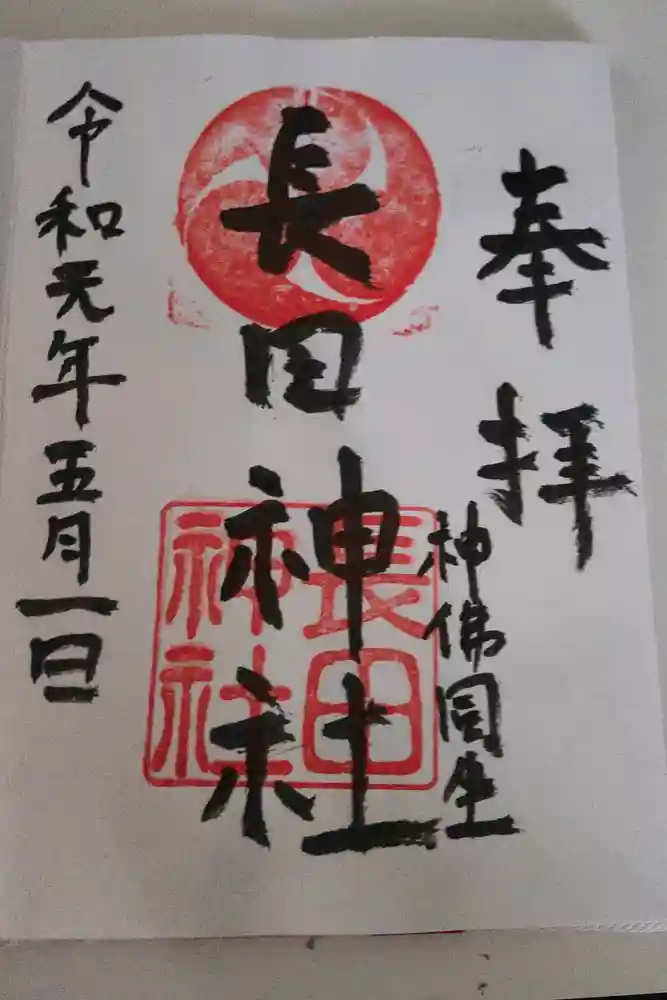 奉拝
神佛同生
長田神社
長田
神社
令和元年五月一日